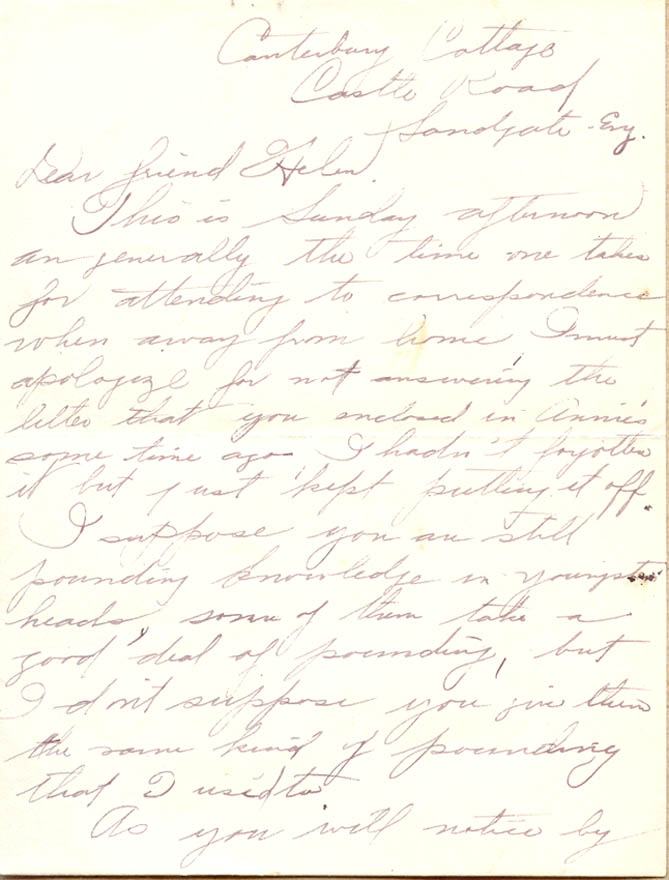 Canterbury Cottage
Castle Road
Sandgate - Eng.
Dear friend Helen.
This is Sunday afternoon
an generally the time one takes
for attending to correspondence
when away from home I must
apologize for not answering the
letter that you enclosed in Annie's
some time ago I hadn't forgotten
it but just kept putting it off.
I suppose you are still
pounding knowledge in youngsters
heads, some of them take a
good deal of pounding, but
I don't suppose you give them
the same kind of pounding
that I used to
As you will notice by